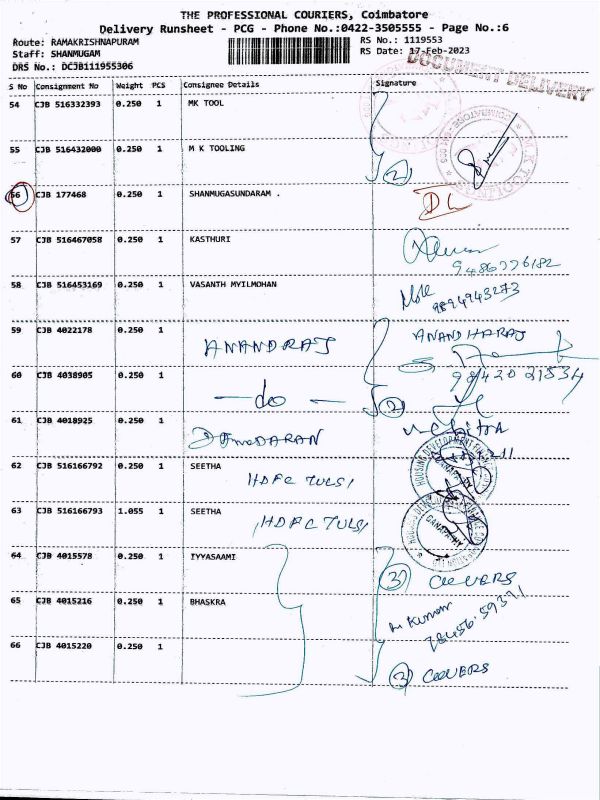 THE PROFESSIONAL COURIERS, Coimbatore
Delivery Runsheet - PCG - Phone No.:0422-3505555 - Page No.:6
Route: RAMAKRISHNAPURAM
RS No.: 1119553
Staff: SHANMUGAM
RS Date: 17-Feb-2023
DRS No.: DCJB111955306
DOCUMENT DELIVERY
S No Consignment No Weight PCS Consignee Details Signature
54 CJB 516332393 0.250 1 MK TOOL
55 CJB 516432000 0.250 1 M K TOOLING
(2)
56 CJB 177468 0.250 1 SHANMUGASUNDARAM . DL
57 CJB 516467058 0.250 1 KASTHURI
9486376182
58 CJB 516453169 0.250 1 VASANTH MYILMOHAN
9894943273
59 CJB 4022178 0.250 1 ANANDRAJ ANANDHARAJ
60 CJB 4038905 0.250 1 — do — (2) 9842021534
61 CJB 4018925 0.250 1 DAMODARAN
62 CJB 516166792 0.250 1 SEETHA
HDFC TULSI
63 CJB 516166793 1.055 1 SEETHA
HDFC TULSI
64 CJB 4015578 0.250 1 IYYASAAMI
(3) COVERS
65 CJB 4015216 0.250 1 BHASKRA
Kumar
66 CJB 4015220 0.250 1
(3) COVERS